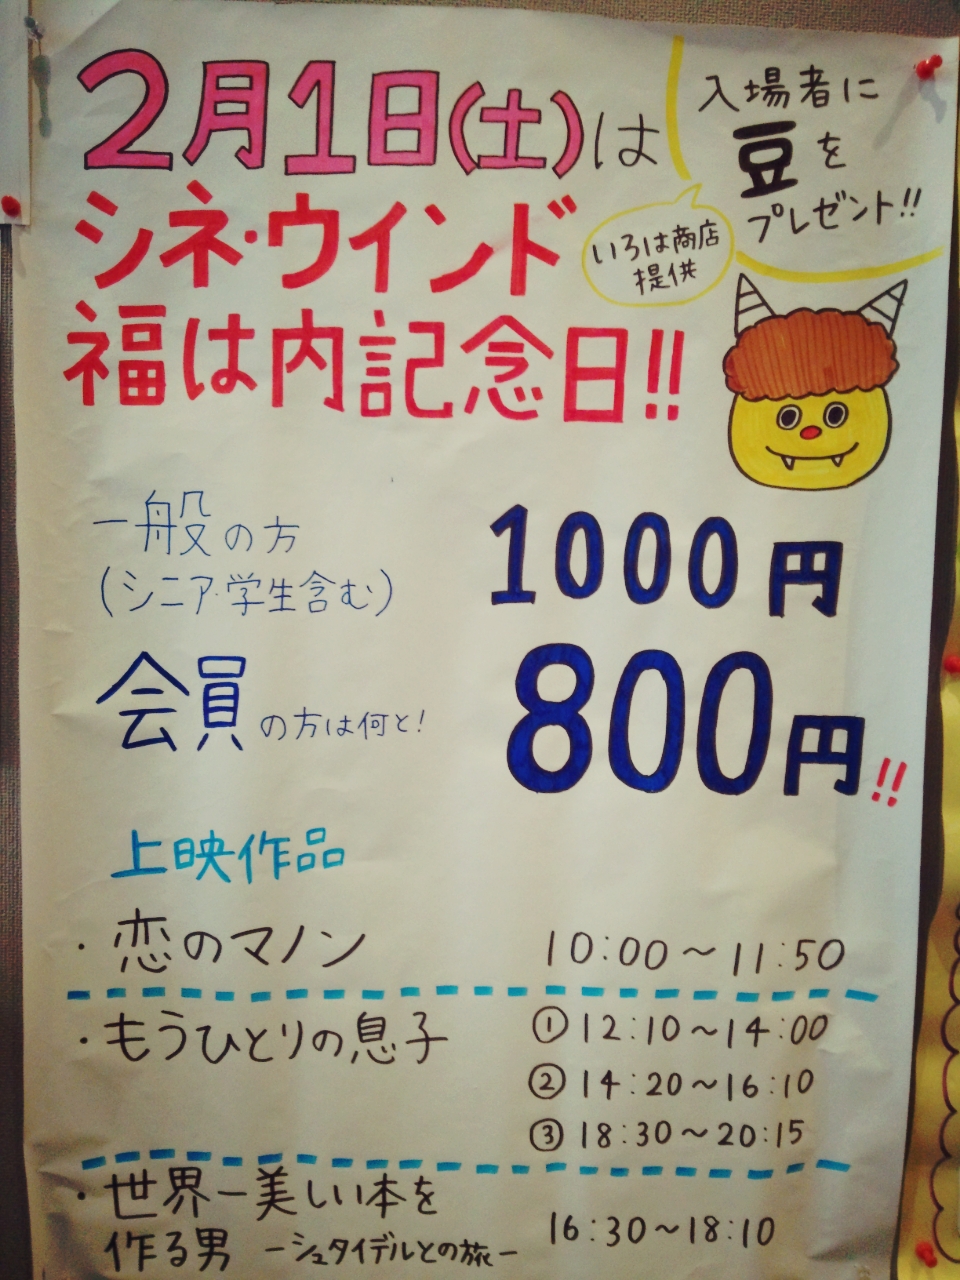 2月1日(土)は
シネ・ウインド
福は内記念日!!
入場者に
豆を
プレゼント!!
いろは商店
提供
一般の方
(シニア・学生含む)
1000円
会員の方は何と!
800円!!
上映作品
・恋のマノン 10:00〜11:50
・もうひとりの息子 ①12:10〜14:00
②14:20〜16:10
③18:30〜20:15
・世界一美しい本を
作る男 ーシュタイデルとの旅ー 16:30〜18:10